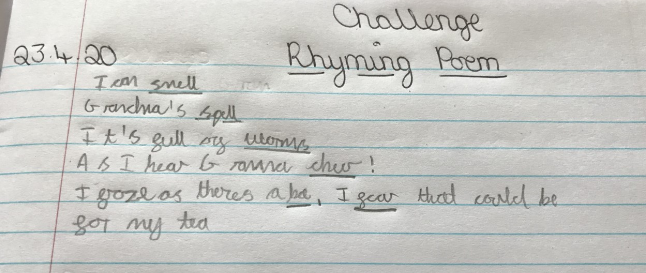 Challenge
23.4.20 Rhyming Poem
I can smell
Grandma's spell
It's full of worms
As I hear Granna chew!
I froze as theres a bee, I fear that could be
for my tea